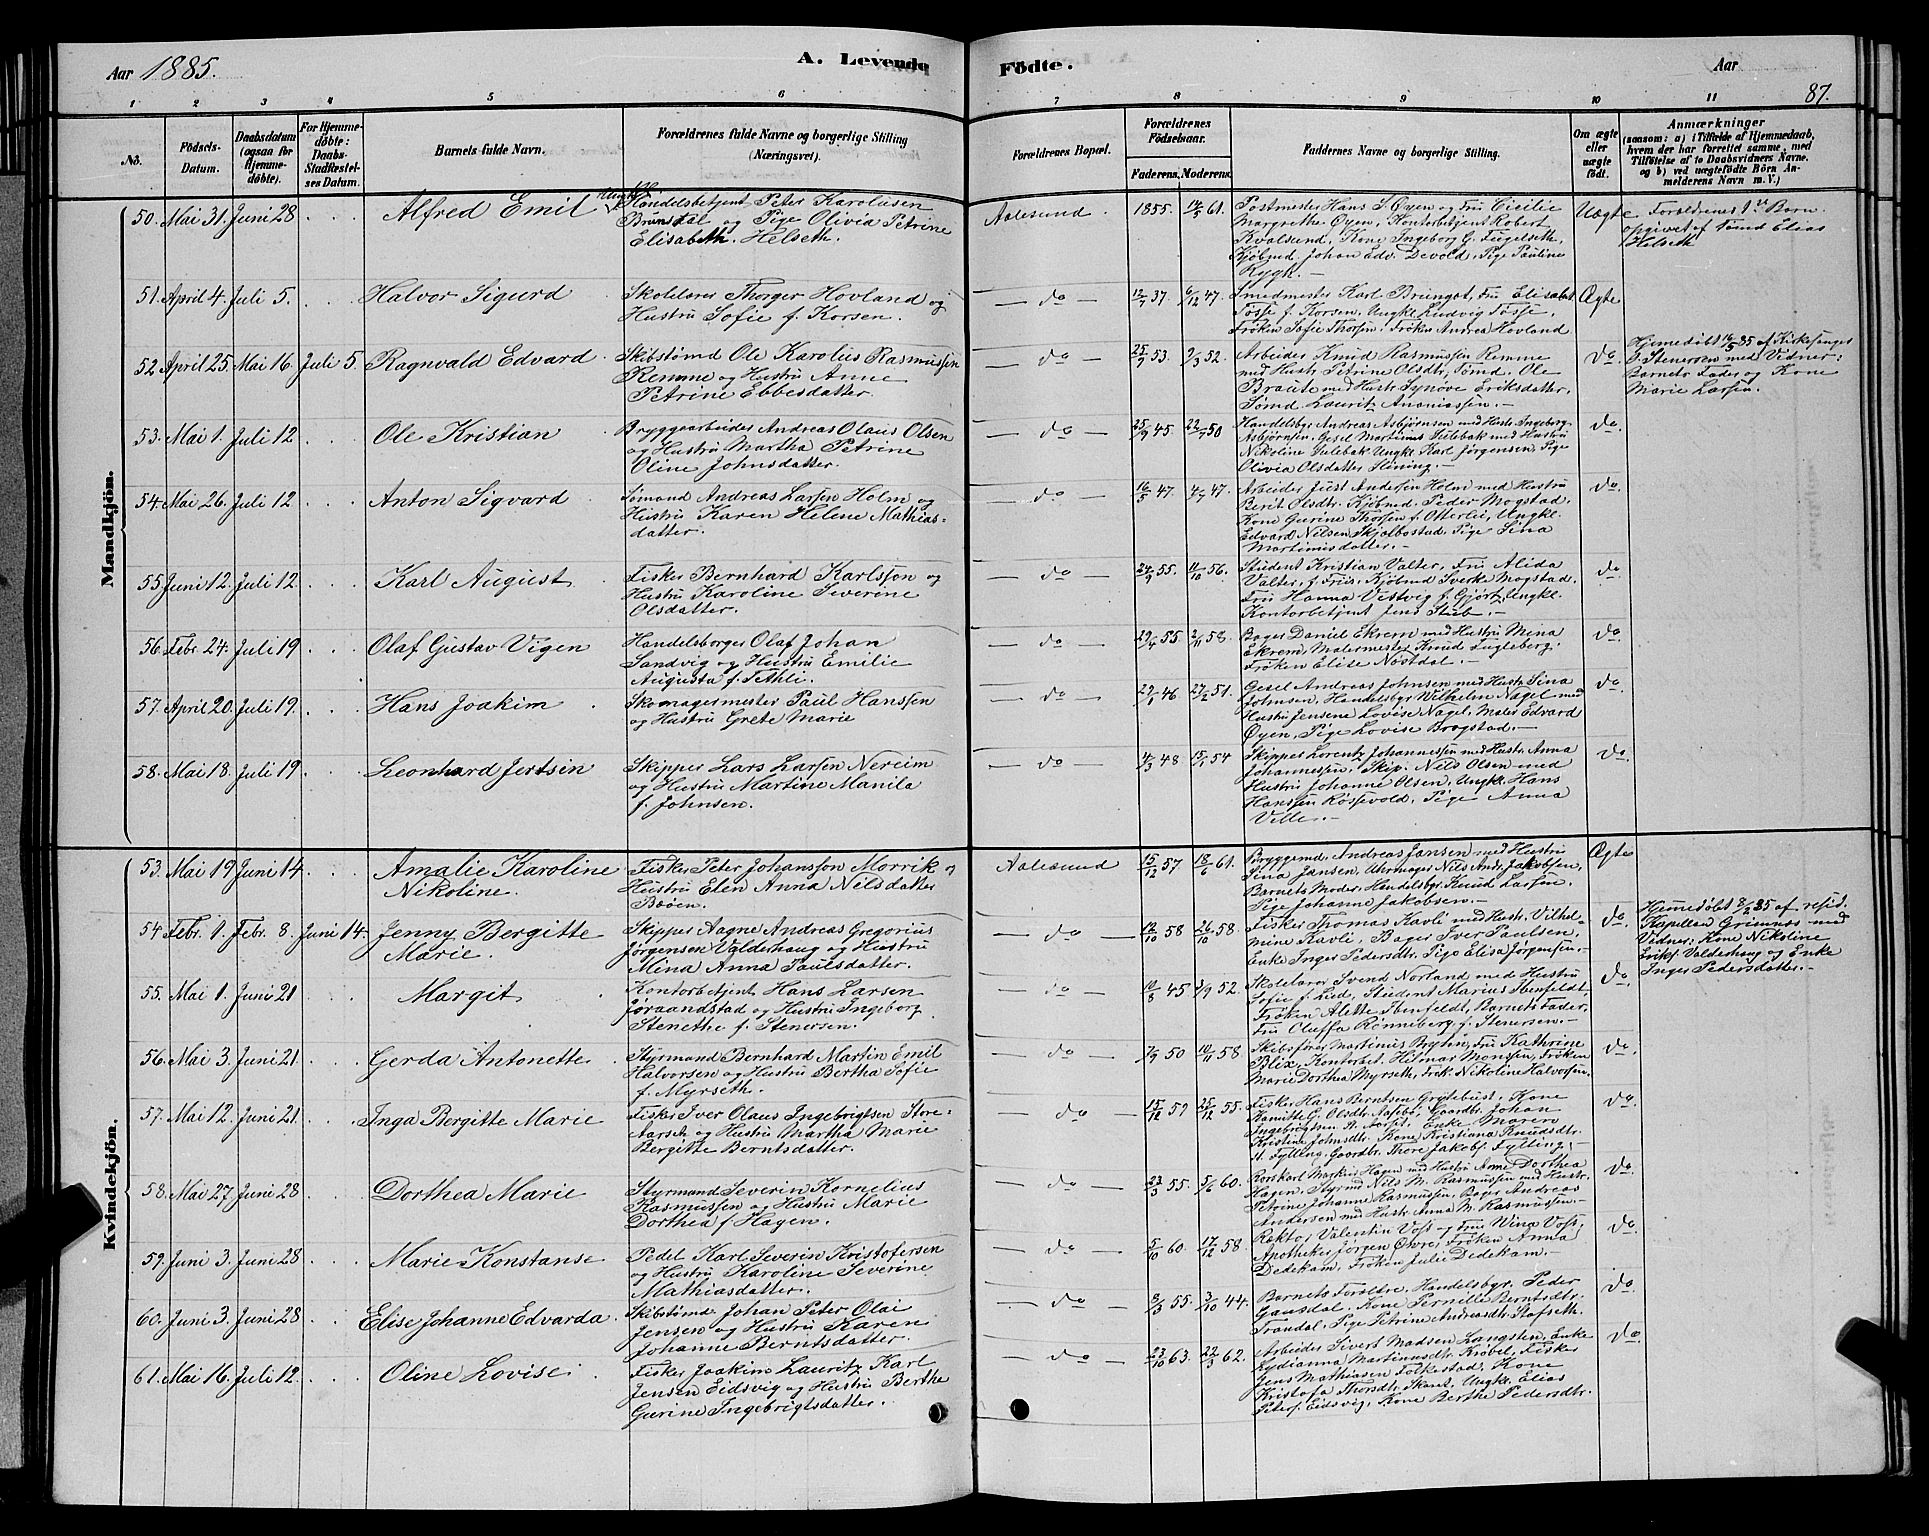 Aar 1885.
A. Levende
Födte.
Aar
87.
1 2 3 4 5 6 7 8 9 10 11
No.
Födsels-
Datum.
Daabsdatum
(ogsaa for
Hjemme-
døbte).
For Hjemme-
døbte:
Daabs-
Stadfæstel-
ses Datum.
Barnets fulde Navn.
Forældrenes fulde Navne og borgerlige Stilling
(Næringsvei).
Forældrenes Bopæl.
Forældrenes
Födselsaar.
Faderens. Moderens.
Faddernes Navne og borgerlige Stilling.
Om ægte
eller
uægte
födt.
Anmærkninger
(saasom: a) i Tilfælde af Hjemmedaab,
hvem der har forrettet samme, med
Tilföielse af to Daabsvidners Navne,
og b) ved uægtefödte Börn An-
melderens Navn m. V.)
Mandkjön.
50. Mai 31. Juni 28 Alfred Emil
Ungkl. Handelsbetjent Peter Karolusen
Brunstal og Pige Olivia Petrine
Elisabeth Helseth.
Aalesund 1855. 14/5 61.
Postmester Hans S Øyen og Fru Cicilie
Margrethe Øyen, Kontorbetjent Robert
Kvalsund, Kone Ingeborg G. Fugelseth,
Kjöbmd. Johan Edv. Devold, Pige Pauline
Rygh.
Uægte
Forældrenes 1ste Barn.
opgivet af Tømd Elias
Helseth
51. April 4. Juli 5. Halvor Sigurd
Skolelærer Thorger Hovland og
Hustru Sofie f. Korsen.
do 12/7 37. 6/12 47.
Smedmester Karl Brungot, Fru Elisabet
Tosse f. Korsen, Ungkl. Ludvig Tosse,
Frøken Sofie Thorsen, Frøken Andrea Hovland
Ægte
52 April 25. Mai 16. Juli 5. Ragnvald Edvard
Skibstømd Ole Karolius Rasmussen
Remme og Hustru Anne
Petrine Ebbesdatter.
do 25/9 53. 9/3 52.
Arbeider Knud Rasmussen Remme
med Hustr. Petrine Olsdtr, Tømd. Ole
Braute med Hustr Synöve Eriksdatter,
Sømd Lauritz Ananiassen.
do
Hjemedöbt 16/5 85 af Kirkesanger
S. Stenersen med Vidner:
Barnets Fader og Kone
Marie Larsen.
53. Mai 1. Juli 12 Ole Kristian
Bryggearbeider Andreas Olaus Olsen
og Hustru Martha Petrine
Oline Johnsdatter.
do 25/9 45. 22/7 50
Handelsbgr Andreas Asbjörnsen med Hustr. Ingeborg
Asbjörnsen, Gesel Martinus Sulebak med Hustru
Nikoline Sulebak Ungkl. Karl Jörgensen, Pige
Olivia Olsdatter Slining.
do
54. Mai 26. Juli 12 Anton Sigvard
Sømand Andreas Larsen Holm og
Hustru Karen Helene Mathias-
datter.
do 16/5 47. 4/7 47.
Arbeider Just Andersen Holm med Hustru
Berit Olsdtr. Kjöbmd. Peder Mogstad,
Kone Gurine Thorsen f. Otterlei, Ungkl.
Edvard Nilsen Skjolbostad, Pige Sina
Martinusdatter.
do
55 Juni 12. Juli 12. Karl August
Fisker Bernhard Karlsson og
Hustru Karoline Severine
Olsdatter.
do 24/9 55. 11/10 56.
Student Kristian Valter, Fru Alida
Valter, f. Friis, Kjöbmd Sverke Mogstad.
Fru Hanna Vestvig f. Gjörtz, Ungkl.
Kontorbetjent Jens Stub.
do
56 Febr. 24. Juli 19 Olaf Gustav Vigen
Handelsborger Olaf Johan
Sandvig og Hustru Emilie
Augusta f. Fethli.
do 29/4 55 2/11 58.
Bager Daniel Ekrem med Hustru Mina
Ekrem, Malermester Knud Fugleberg.
Frøken Elise Nöstdal.
do
57. April 20. Juli 19. Hans Joakim
Skomagermester Paul Hanssen
og Hustru Grete Marie
do 29/1 46 27/2 51.
Gesel Andreas Johnsen med Hustr Sina
Johnsen, Handelsbgr Wilhelm Nagel med
Hustru Jensene Lovise Nagel, Maler Edvard
Øyen, Pige Lovise Brogstad.
do
58. Mai 18. Juli 19 Leonhard Jertsin
Skipper Lars Larsen Nereim
og Hustru Martine Manila
f. Johnsen.
do 4/3 48 15/1 54
Skipper Lorentz Johannessen med Hustr. Anna
Johannessen, Skip. Nils Olsen med
Hustru Johanne Olsen, Ungkl. Hans
Hanssen Rösevold, Pige Anna
Velle.
do
Kvindekjön.
53. Mai 19 Juni 14 Amalie Karoline
Nikoline.
Fisker Peter Johansson Morrik og
Hustru Elen Anna Nilsdatter
Böen.
Aalesund 15/12 57 18/6 61.
Bryggemd. Andreas Jansen med Hustru
Sina Jansen, Uhrmager Nils Andr. Jakobsen,
Barnets Moder, Handelsbgr. Knud Larsen,
Pige Johanne Jakobsen.
Ægte
54 Febr. 1. Febr. 8. Juni 14. Jenny Bergitte
Marie.
Skipper Aagne Andreas Gregorius
Jörgensen Valderhaug og Hustru
Mina Anna Paulsdatter.
do 12/10 58 26/10 58.
Fisker Thomas Kavli med Hustr. Vilhel-
mine Kavli, Bager Iver Paulsen,
Enke Inger Pedersdtr. Pige Elisa Jörgensen.
do
Hjemedöbt 8/2 85 af resid.
Kapellan Grimnes med
Vidner: Kone Nikoline
Eriks. Valderhaug og Enke
Inger Pedersdatter.
55. Mai 1. Juni 21 Margit
Kontorbetjent Hans Larsen
Jöraandstad og Hustru Ingeborg
Stenethe f. Stenersen.
do 10/8 45 3/9 52.
Skolelærer Svend Norland med Hustru
Sofie f. Lied, Student Marius Ibenfeldt,
Frøken Alette Ibenfeldt, Barnets Fader,
Fru Oluffa Rönneberg f. Stenersen.
do
56. Mai 3. Juni 21 Gerda Antonette
Styrmand Bernhard Martin Emil
Halvorsen og Hustru Bertha Sofie
f. Myrseth.
do 7/9 50 10/11 58.
Skibsförer Martinus Brÿhn, Fru Kathrine
Blix, Kontorbet. Hilmar Monssen, Frøken
Marie Dorthea Myrseth, Frøk. Nikoline Halvorsen.
do
57. Mai 12. Juni 21. Inga Bergitte Marie
Fisker Iver Olaus Ingebrigtsen Store-
Aarseth og Hustru Martha Marie
Bergitte Berntsdatter.
do 15/12 59 25/12 55.
Fisker Hans Berntsen Grytebust, Kone
Hanritte G. Olsdtr. Aasebö, Gaardbr. Johan
Ingebrigtsen St. Aarset, Enke Maren
Kristine Johnsdtr. Kone Kristiana Knudsdtr.
St. Fylling, Gaardbr. Thore Jakobs. Fylling.
do
58. Mai 27 Juni 28 Dorthea Marie
Styrmand Severin Kornelius
Rasmussen og Hustru Marie
Dorthea f Hagen.
do 23/3 55. 5/6 60.
Rorskarl Markus Hagen med Hustru Anne Dorthea
Hagen, Styrmd Nils M. Rasmussen med Hustr.
Petrine Johanne Rasmussen, Bager Andreas
Andersen med Hustr. Anna M. Rasmussen.
do
59. Juni 3. Juni 28 Marie Konstanse
Pedel Karl Severin Kristofersen
og Hustru Karoline Severine
Mathiasdatter.
do 5/10 60. 17/12 58.
Rektor Valentin Voss og Fru Wina Voss,
Apotheker Jörgen Øwre, Frøken Anna
Dedekam, Frøken Julie Dedekam.
do
60. Juni 3. Juni 28 Elise Johanne Edvarda
Skibstømd Johan Peter Olai
Jensen og Hustru Karen
Johanne Berntsdatter.
do 8/3 55. 3/10 44.
Barnets Forældre, Handelsbgr. Peder
Gausdal, Kone Pernille Berntsdtr.
Trandal, Pige Petrine Andreasdtr. Stafseth.
do
61. Mai 16. Juli 12. Oline Lovise
Fisker Joakim Lauritz Karl
Jensen Eidsvig og Hustru Bertha
Gurine Ingebrigtsdatter.
do 23/10 63. 22/3 62.
Arbeider Sivert Madsen Langsten, Enke
Lydianna Martinusdtr. Kröbel, Fisker
Jens Mathiasen Folkestad, Kone
Kristofa Thorsdtr. Skaret, Ungkl. Elias
Peters. Eidsvig, Kone Berthe Pedersdtr.
do